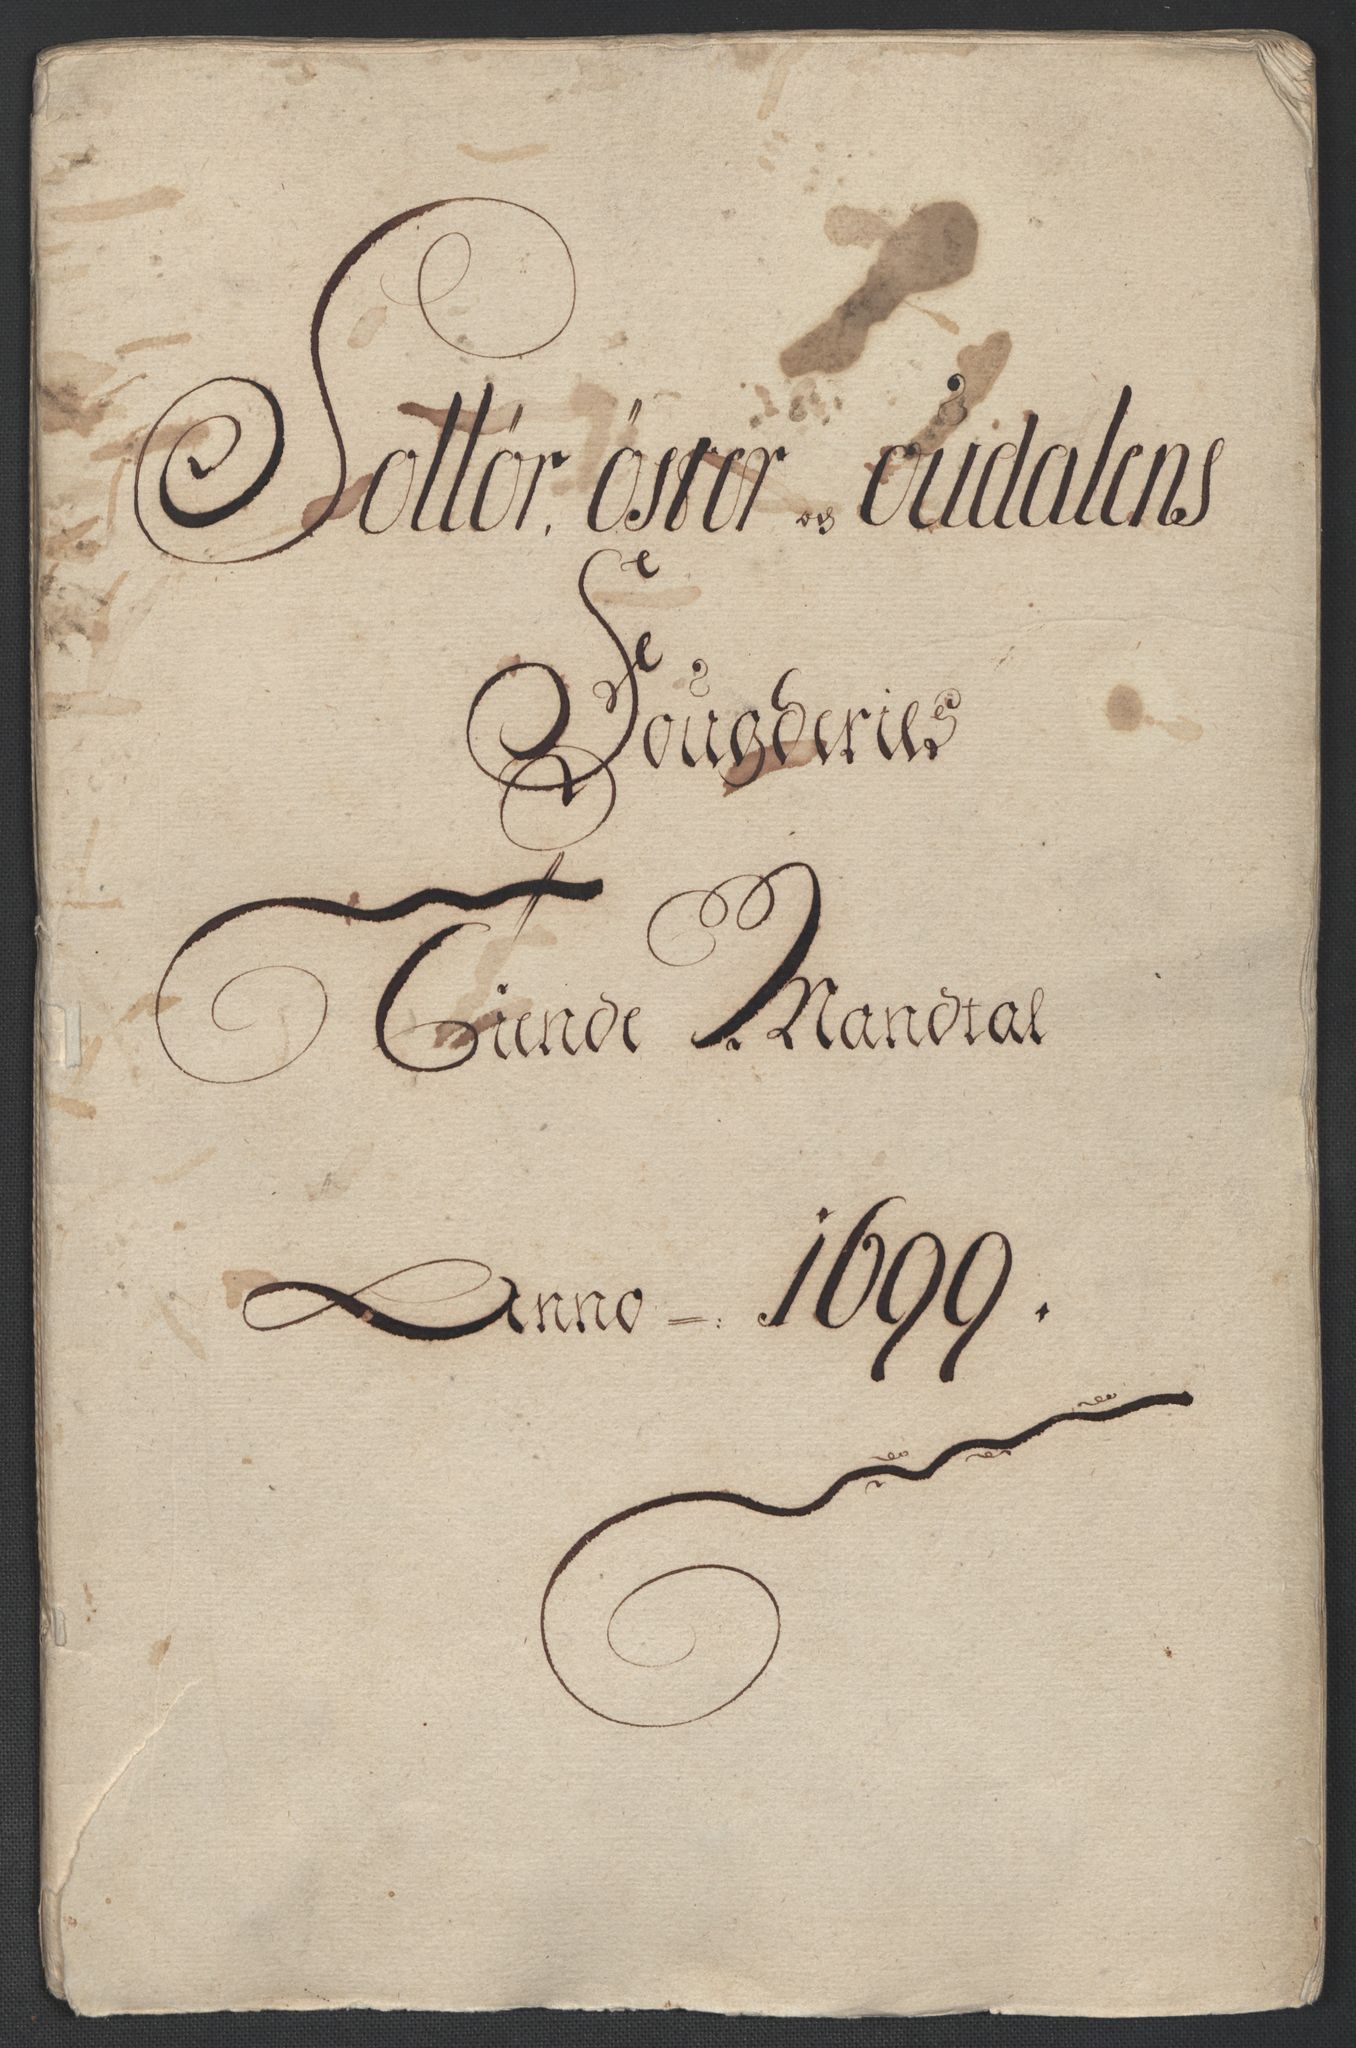 Sollør, öster og oudalens
Fougderies
Tiende Mandtal
Anno =: 1699.